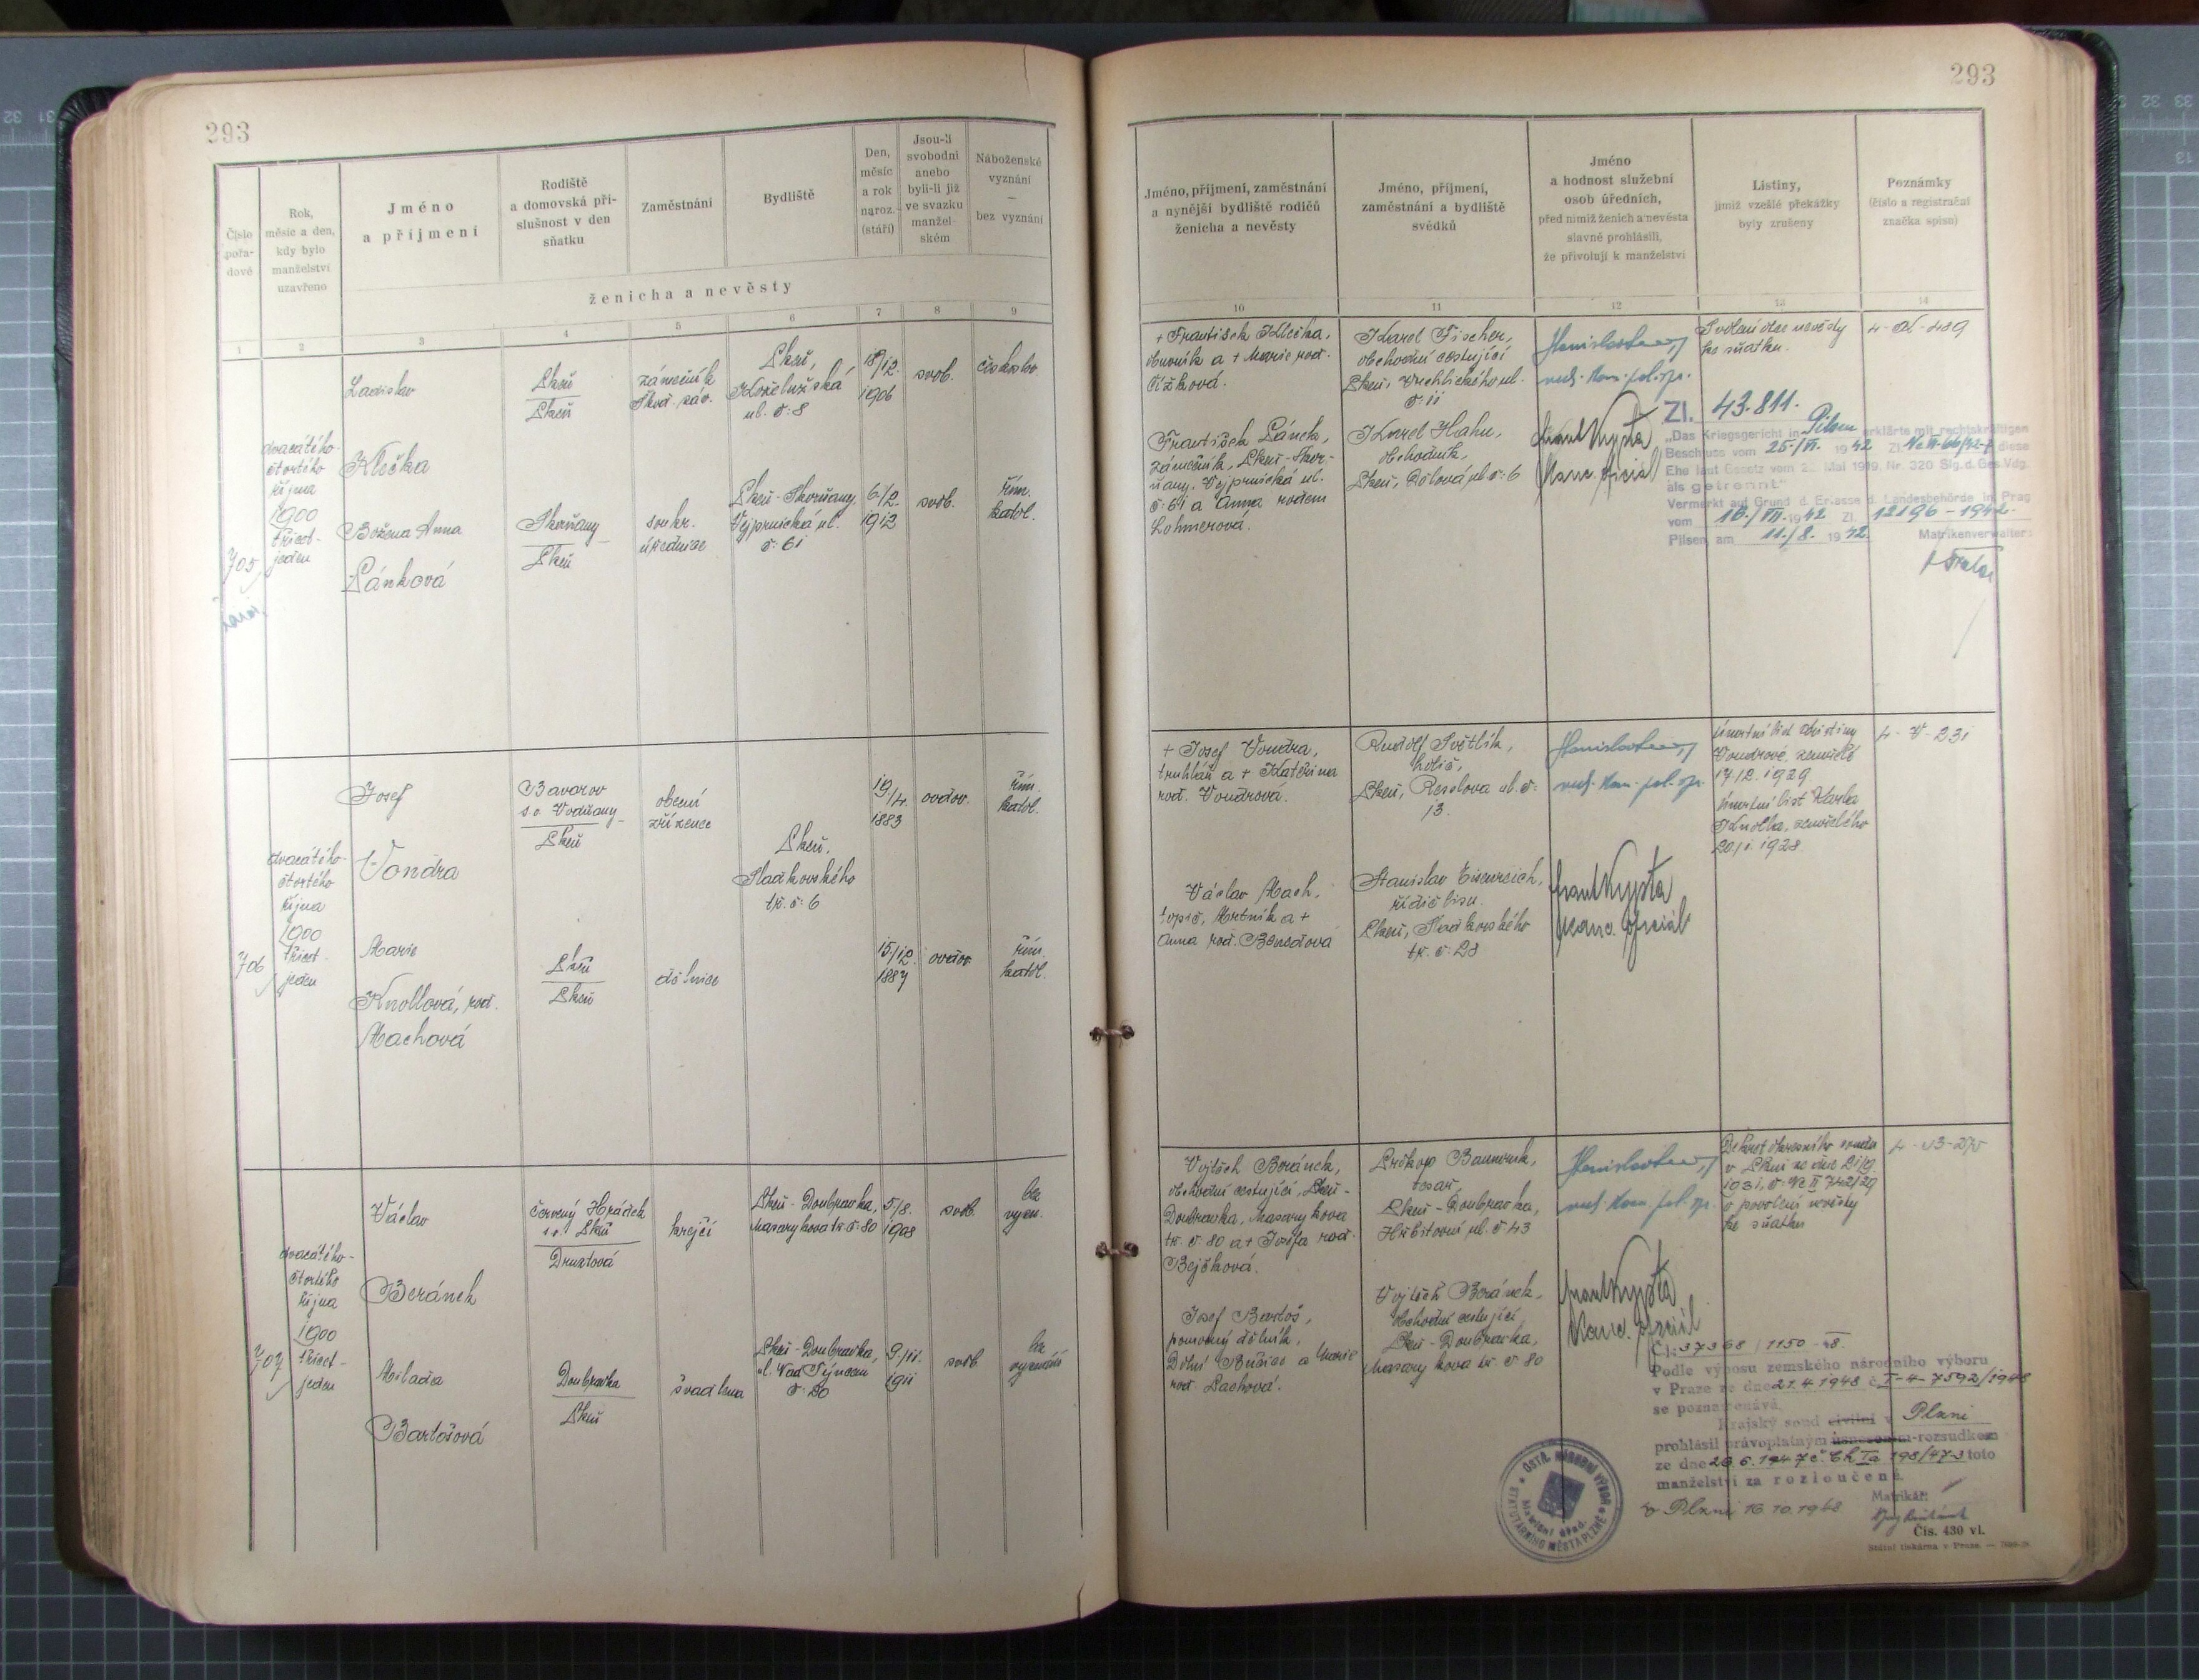 293
Číslo pořadové
Rok, měsíc a den, kdy bylo manželství uzavřeno
Jméno a příjmení
Rodiště a domovská příslušnost v den sňatku
Zaměstnání
Bydliště
Den, měsíc a rok naroz. (stáří)
Jsou-li svobodni anebo byli-li již ve svazku manželském
Náboženské vyznání — bez vyznání
ženicha a nevěsty
1 2 3 4 5 6 7 8 9
705
dvacátého-
čtvrtého
října
1900
třicet-
jeden
Ladislav
Klečka
Plzeň
Plzeň
zámečník
Škod. záv.
Plzeň,
Koželužská
ul. č. 8
18/12.
1906
svob.
českoslov.
Božena Anna
Pánková
Skvrňany
Plzeň
soukr.
úřednice
Plzeň-Skvrňany
Vejprnická ul.
č. 61
6./2.
1912
svob.
řím.
katol.
706
dvacátého-
čtvrtého
října
1900
třicet-
jeden
Josef
Vondra
Bavorov
s.o. Vodňany
Plzeň
obecní
zřízenec
Plzeň,
Sladkovského
tř. č. 6
19./4.
1883
ovdov.
řím.
katol.
Marie
Knollová, roz.
Machová
Plzeň
Plzeň
dělnice
15/12.
1887
ovdov.
řím.
katol.
707
dvacátého-
čtvrtého
října
1900
třicet-
jeden
Václav
Beránek
červený Hrádek
s.o. Plzeň
Druztová
krejčí
Plzeň-Doubravka,
Masarykova tř. č. 80
5/8.
1908
svob.
bez
vyzn.
Milada
Bartošová
Doubravka
Plzeň
švadlena
Plzeň-Doubravka,
ul. Nad Týncem
9./11.
1911
svob.
bez
vyznání
293
Jméno, příjmení, zaměstnání a nynější bydliště rodičů ženicha a nevěsty
Jméno, příjmení, zaměstnání a bydliště svědků
Jméno a hodnost služební osob úředních, před nimiž ženich a nevěsta slavně prohlásili, že přivolují k manželství
Listiny, jimiž vzešlé překážky byly zrušeny
Poznámky (číslo a registrační značka spisu)
10 11 12 13 14
+ František Klečka,
a + Marie roz.
Čížková.
Karel Fischer,
obchodní cestující
Plzeň, Vrchlického ul.
č. 11
Svolení otce nevěsty
ke sňatku.
František Pánek,
zámečník, Plzeň-Skvr-
ňany, Vejprnická ul.
č. 61 a Anna rodem
Lohmerova.
Karel Hahn,
obchodník,
kanc. oficiál
Zl. 43.811.
"Das Kriegsgericht in Pilsen erklärte mit rechtskräftigen
Beschluss vom 25/VI. 1942 Zl. diese
Ehe laut Gesetz vom 22. Mai 1919, Nr. 320 Slg.d.Ges.Vdg.
als getrennt"
Vermerkt auf Grund d. Erlasse d. Landesbehörde in Prag
vom 10./VII. 1942 Zl. 12196-1942.
Pilsen, am 11./8. 1942. Matrikenverwalter:
+ Josef Vondra,
truhlář a + Kateřina
roz. Vondrová.
Rudolf Světlík,
holič,
Plzeň, Resslova ul. č.
13.
Úmrtní list Kristiny
Vondrové, zemřelé
17/12. 1929.
Úmrtní list Karla
Knolla, zemřelého
20/1. 1928
4-V-231
Václav Mach,
topič, Mrtník a +
Anna roz.
Stanislav Eisenreich,
řidič
Plzeň, Sladkovského
tř. č. 28
kanc. oficiál
Vojtěch Beránek,
obchodní cestující, Plzeň-
Doubravka, Masarykova
tř. č. 80 a + Josefa roz.
Bejčková.
Prokop
tesař,
Plzeň-Doubravka,
Hřbitovní ul. č. 43
Dekret okresního soudu
v Plzni ze dne 21/9.
1931, č. Nc II 742/29
o povolení nevěsty
ke sňatku
Josef Bartoš,
pomocný dělník,
a Marie
roz.
Vojtěch Beránek,
obchodní cestující,
Plzeň-Doubravka,
Masarykova tř. č. 80
kanc. oficiál
Čj. 37368/1150-48.
Podle výnosu zemského národního výboru
v Praze ze dne 21.4.1948 č. I-4-7592/1948
se poznamenává,
Krajský soud civilní v Plzni
prohlásil právoplatným usnesením-rozsudkem
ze dne 20.6.1947 č. Ck Ia 198/47-3 toto
manželství za rozloučené.
v Plzni 16.10.1948
Matrikář:
ÚSTŘ. NÁRODNÍ VÝBOR STATUTÁRNÍHO MĚSTA PLZNĚ
Matriční úřad.
Čís. 430 vl.
Státní tiskárna v Praze.